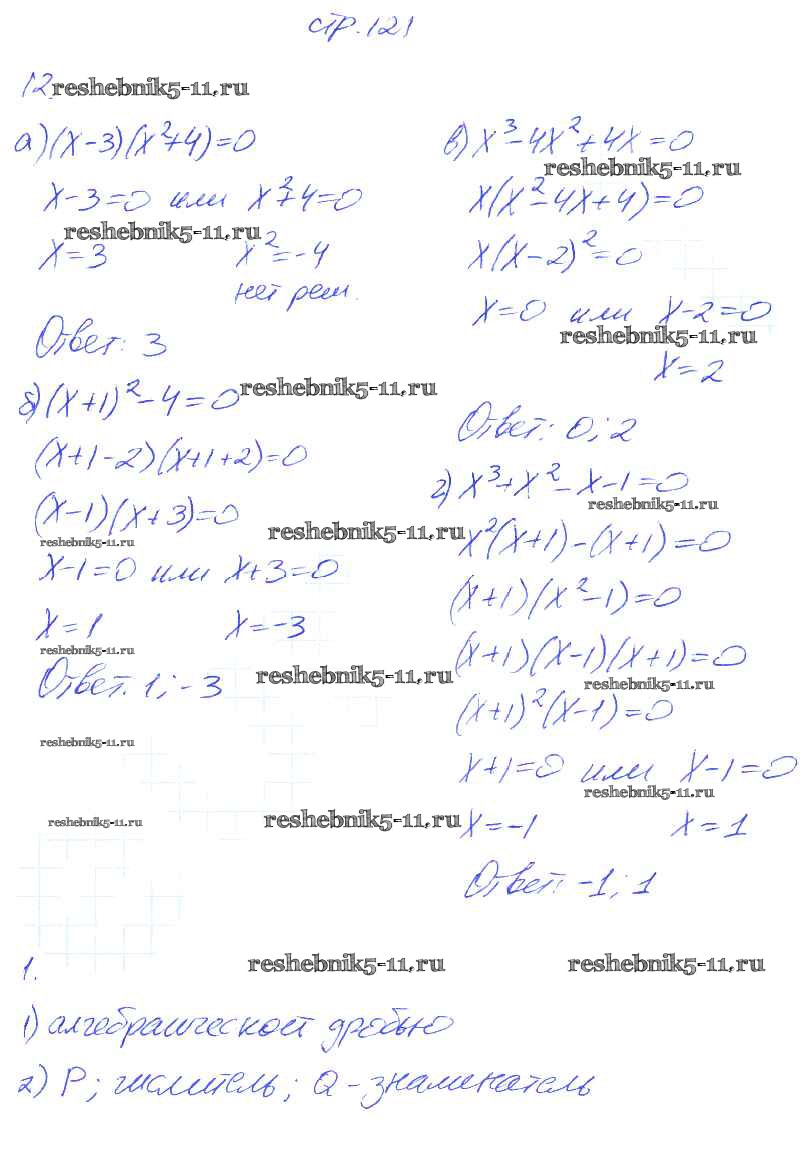 стр. 121
12. reshebnik5-11.ru
а) (x-3)(x²+4)=0
x-3=0 или x²+4=0
reshebnik5-11.ru
x=3 x²=-4
нет реш.
Ответ: 3
б) (x+1)²-4=0 reshebnik5-11.ru
(x+1-2)(x+1+2)=0
(x-1)(x+3)=0
reshebnik5-11.ru reshebnik5-11.ru
x-1=0 или x+3=0
x=1 x=-3
reshebnik5-11.ru
Ответ. 1; -3 reshebnik5-11.ru
reshebnik5-11.ru
reshebnik5-11.ru reshebnik5-11.ru
в) x³-4x²+4x=0
reshebnik5-11.ru
x(x²-4x+4)=0
x(x-2)²=0
x=0 или x-2=0
reshebnik5-11.ru
x=2
Ответ: 0; 2
г) x³+x²-x-1=0
reshebnik5-11.ru
x²(x+1)-(x+1)=0
(x+1)(x²-1)=0
(x+1)(x-1)(x+1)=0
reshebnik5-11.ru
(x+1)²(x-1)=0
x+1=0 или x-1=0
reshebnik5-11.ru
x=-1 x=1
Ответ: -1; 1
1. reshebnik5-11.ru reshebnik5-11.ru
1) алгебраической дробью
2) P; числитель; Q - знаменатель